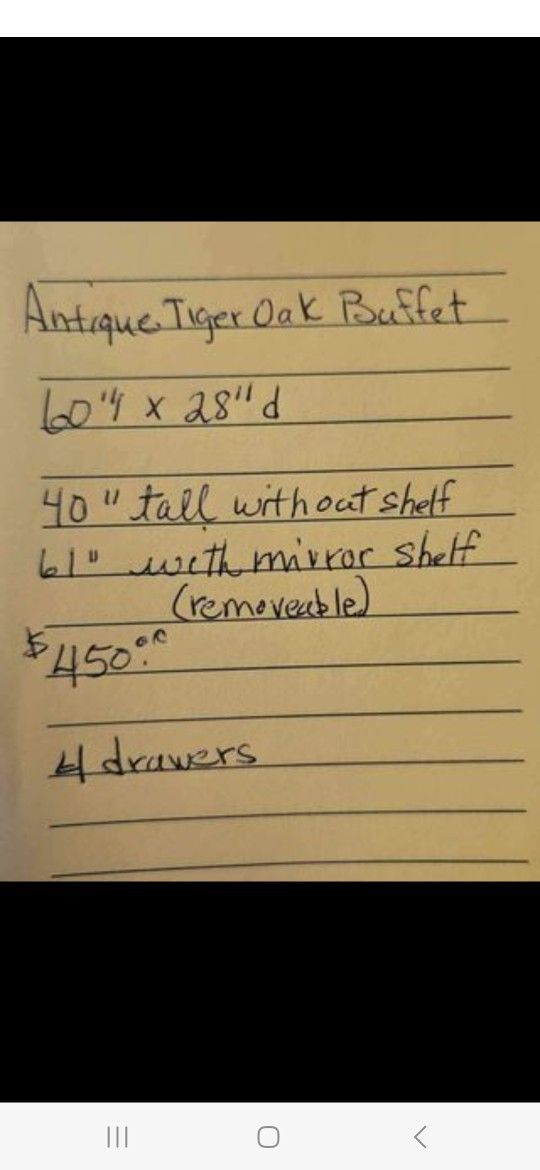 Antique Tiger Oak Buffet
60" x 28" d
40" tall without shelf
61" with mirror shelf
(removeable)
$450.00
4 drawers